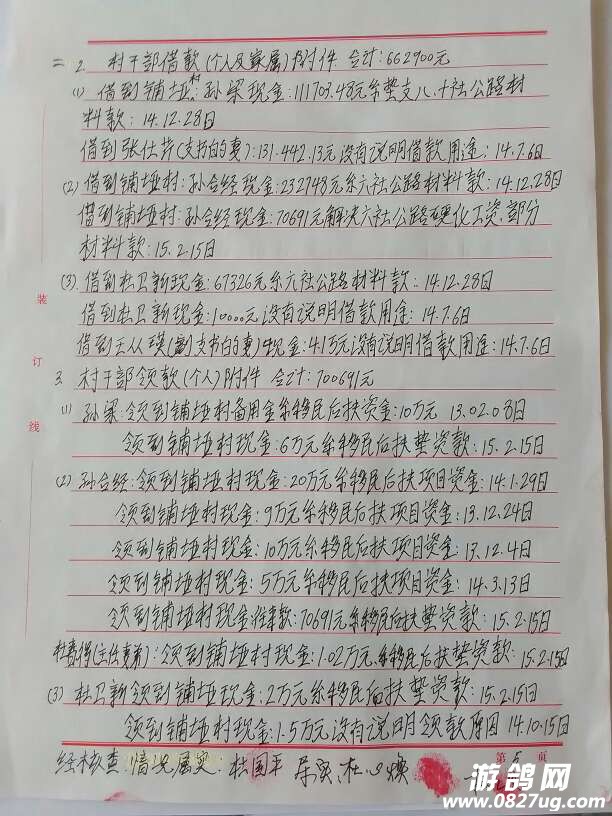 二 2. 村干部借款(个人及家属)附件 合计:662900元
(1) 借到铺垭村:孙梁现金:111703.48元系垫支八、十社公路材
料款:14.12.28日
借到张仕芹(支书的妻):131.442.13元没有说明借款用途:14.7.6日
(2) 借到铺垭村:孙合经现金:232748元系六社公路材料款:14.12.28日
借到铺垭村:孙合经现金:70691元解决六社公路硬化工资.部分
材料款:15.2.15日
(3). 借到杜卫新现金:67326元系六社公路材料款:14.12.28日
借到杜卫新现金:10000元没有说明借款用途:14.7.6日
借到王从瑛(副支书的妻)现金:4.1万元没有说明借款用途:14.7.6日
3. 村干部领款(个人)附件 合计:700691元
(1) 孙梁:领到铺垭村备用金系移民后扶资金:10万元 13.02.08日
领到铺垭村现金:6万元系移民后扶垫资款:15.2.15日
(2) 孙合经:领到铺垭村现金:20万元系移民后扶项目资金:14.1.29日
领到铺垭村现金:9万元系移民后扶项目资金:13.12.24日
领到铺垭村现金:10万元系移民后扶项目资金:13.12.4日
领到铺垭村现金:5万元系移民后扶项目资金:14.3.13日
领到铺垭村现金:70691元系移民后扶垫资款:15.2.15日
领到铺垭村现金:1.02万元.系移民后扶垫资款:15.2.15日
(3) 杜卫新领到铺垭村现金:2万元系移民后扶垫资款:15.2.15日
领到铺垭村现金:1.5万元没有说明领款原因 14.10.15日
装
订
线
第 页
经核查:情况属实. 杜国平
游鸽网
www.0827ug.com